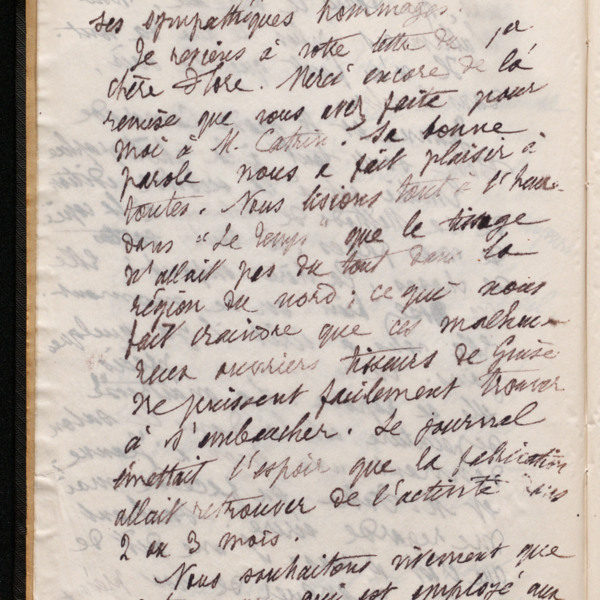 ses sympathiques hommages.
Je reviens à votre lettre du 1er
chère Flore. Merci encore de la
remise que vous avez faite pour
moi à M. Catrin. Sa bonne
parole nous a fait plaisir à
toutes. Nous lisions tout à l'heure
dans "Le Temps" que le tissage
n'allait pas du tout dans la
région du nord ; ce qui nous
fait craindre que ces malheu-
reux ouvriers tisseurs de Guise
ne puissent facilement trouver
à s'embaucher. Le journal
émettait l'espoir que la fabrication
allait retrouver de l'activité dans
2 ou 3 mois.
Nous souhaitons vivement que
qui est employé aux